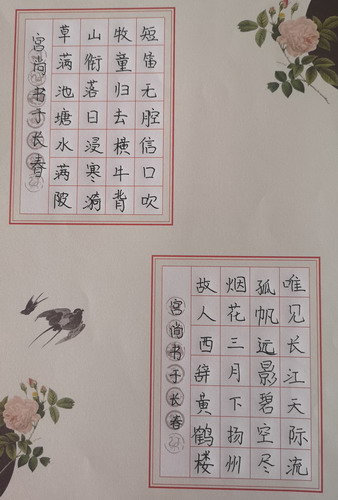 草满池塘水满陂
山衔落日浸寒漪
牧童归去横牛背
短笛无腔信口吹
宫尚书于长春
故人西辞黄鹤楼
烟花三月下扬州
孤帆远影碧空尽
唯见长江天际流
宫尚书于长春